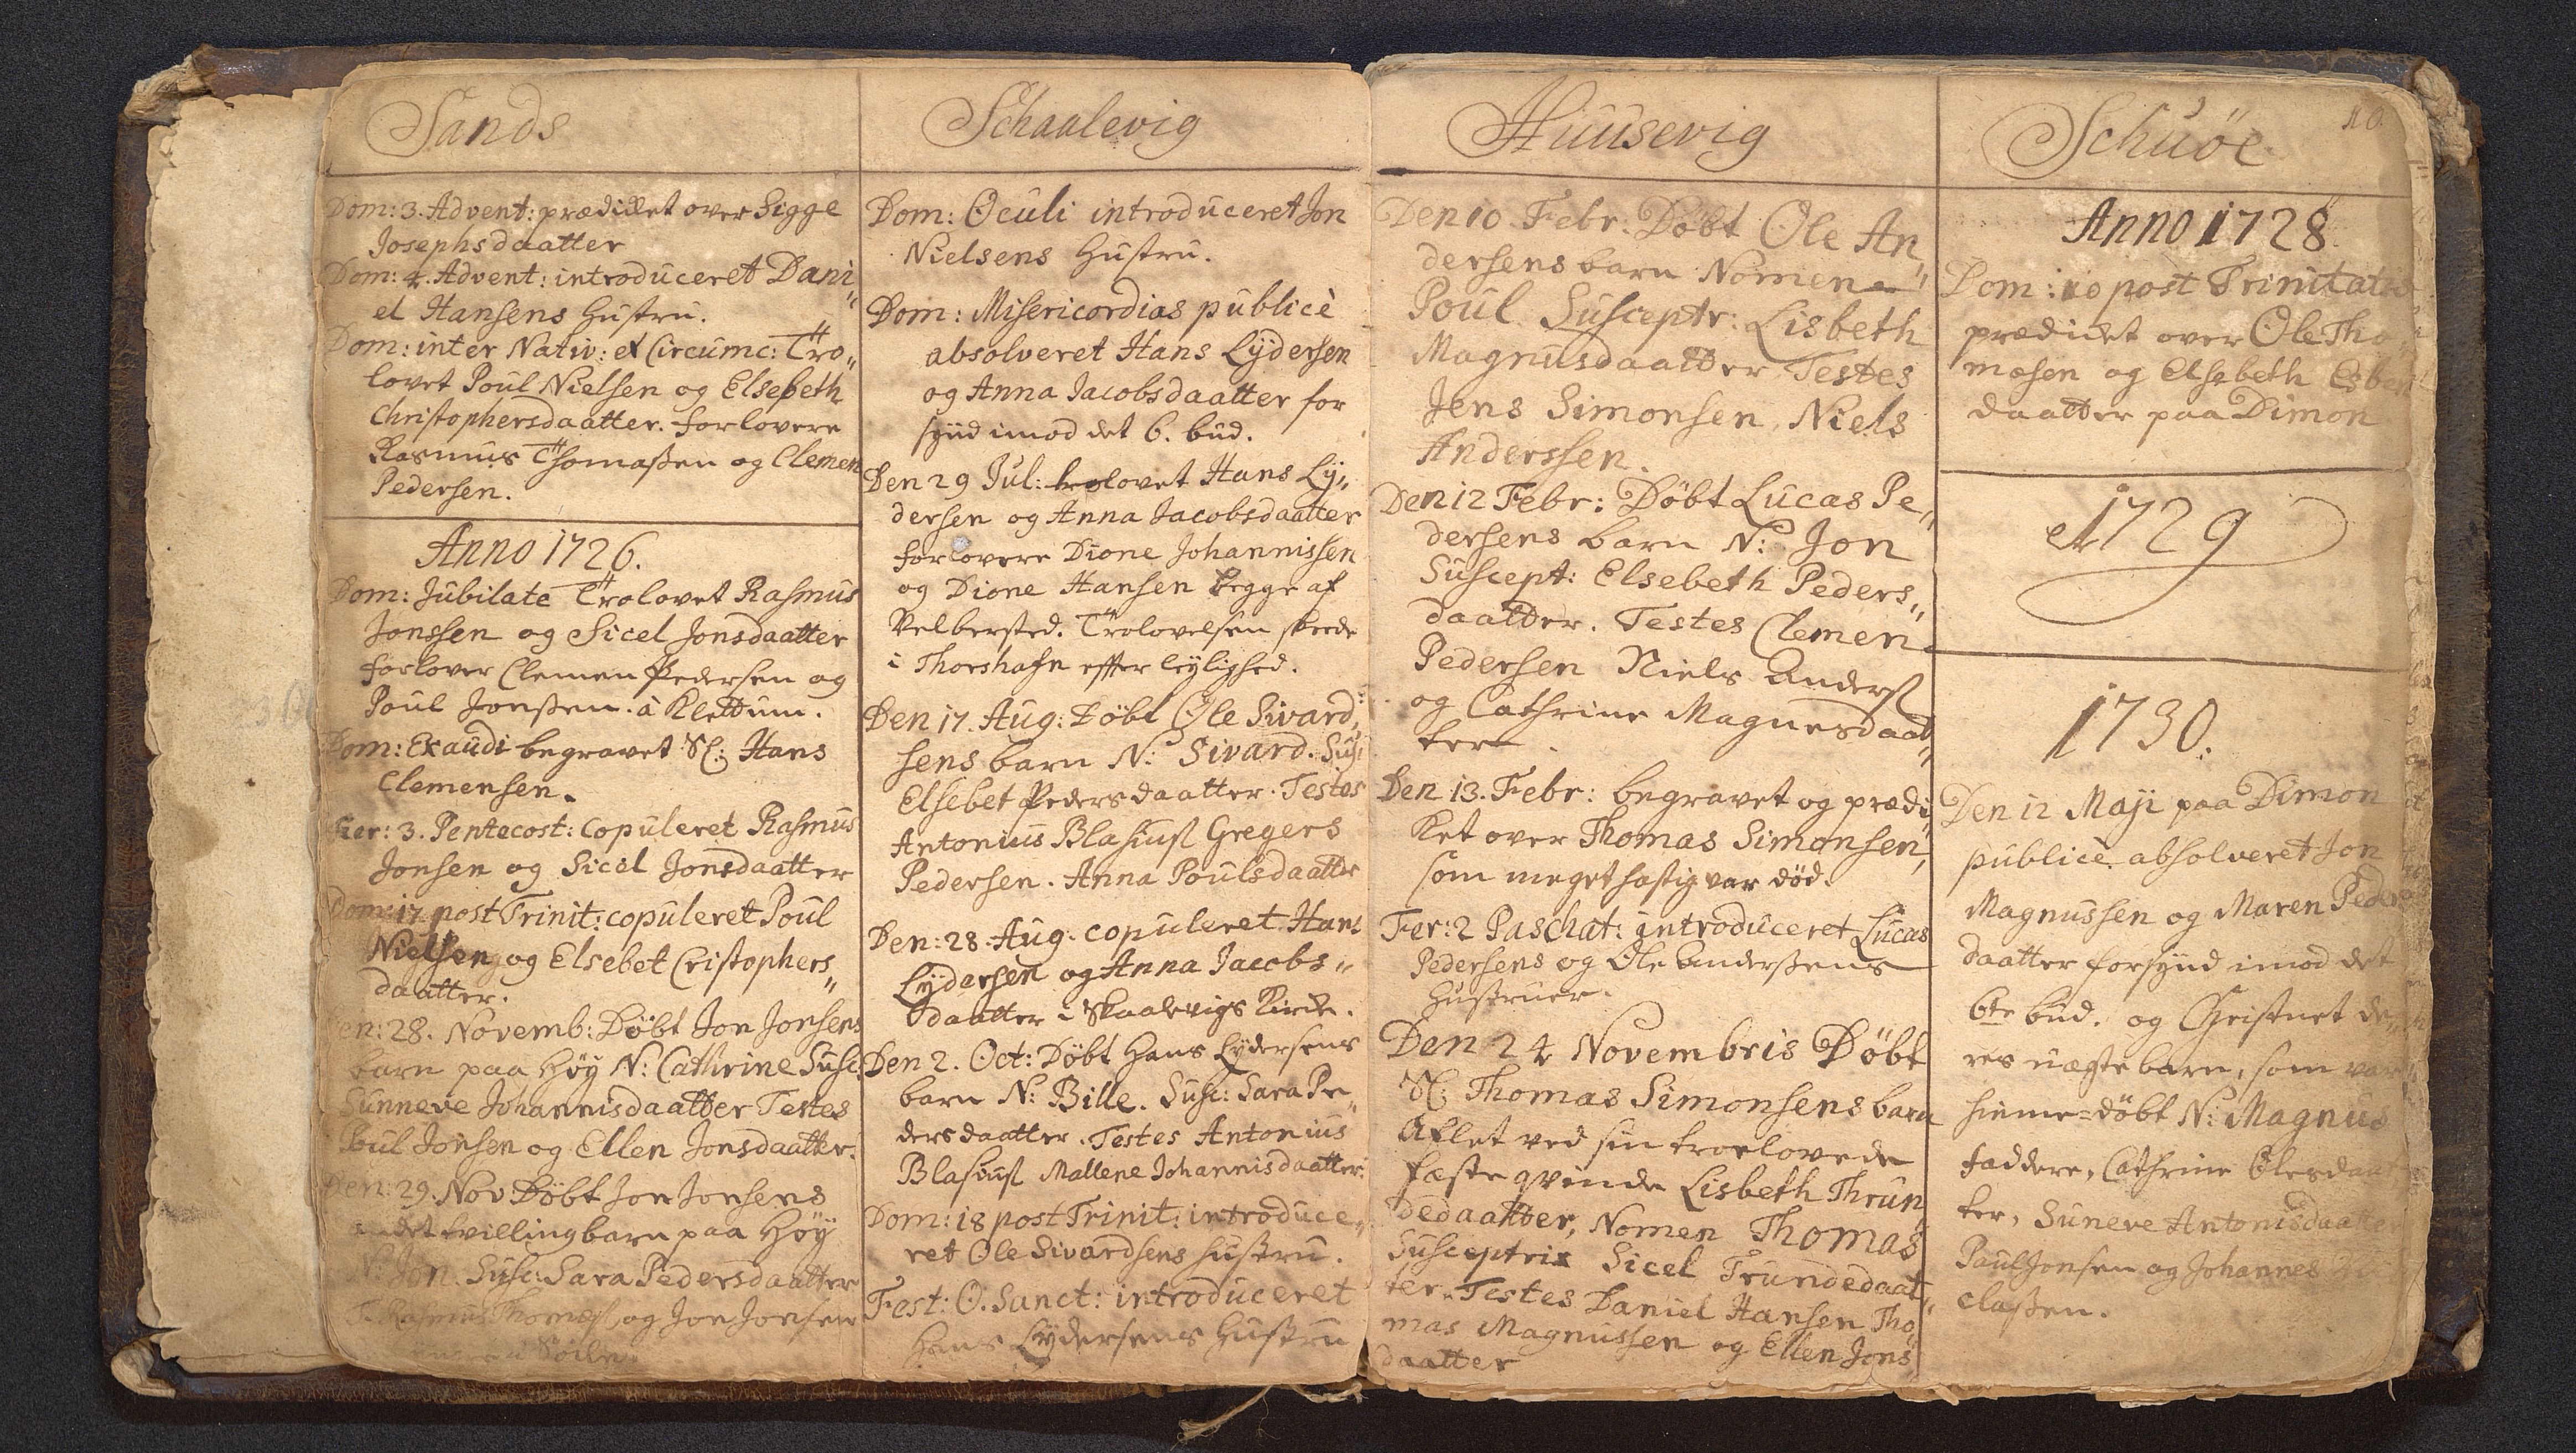 Sands
Dom: 3. Advent: prædiket over Sigge
Josephsdaatter
Dom: 4. Advent: introduceret Dani„
el Hansens Hustru.
Dom: inter Nativ: et Circumc: Tro„
lovet Poul Nielsen og Elsebeth
Christophersdaatter. Forlovere
Rasmus Thomaßen og Clemen
Pedersen.
Anno 1726.
Dom: Jubilate Trolovet Rasmus
Jonssen og Sicel Jonsdaatter
Forlover Clemen Pedersen og
Poul Jonßen. à Klettum.
Dom: Exaudi begravet Sl: Hans
Clemensen.
Fer: 3. Pentecost: Copuleret Rasmus
Jonsen og Sicel Jonsdaatter
Dom: 17 post Trinit: copuleret Poul
Nielsen og Elsebet Cristophers„
daatter.
Den: 28. Novemb: Døbt Jon Jonsens
barn paa Høÿ N: Cathrine Susc:
Sunneve Johannisdaatter Testes
Poul Jonsen og Ellen Jonsdaatter.
Den: 29. Nov Døbt Jon Jonsens
andet tvillingbarn paa Høÿ
N: Jon. Susc: Sara Pedersdaatter
T. Rasmus Thomæs: og Jon Jonsen
Schaalevig
Dom: Oculi introduceret Jon
Nielsens Hustru.
Dom: Misericordias publicè
absolveret Hans Lÿdersen
og Anna Jacobsdaatter for
sÿnd imod det 6. bud.
Den 29 Jul: trolovet Hans Lÿ„
dersen og Anna Jacobsdaatter
forlovere Dione Johannissen
og Dione Hansen begge af
Velbersted. Trolovelsen skeede
i Thorshafn effter leÿlighed.
Den 17. Aug: Døbt Ole Sivard„
sens barn N: Sivard. Sus:
Elsebet Pedersdaatter. Testes
Antonius Blasiuss Gregers
Pedersen. Anna Poulsdaatter
Den: 28. Aug. copuleret Hans
Lÿdersen og Anna Jacobs„
daatter i Skaalevigs Kircke.
Den 2. Oct: Døbt Hans Lÿdersens
barn N: Bille. Susc: Sara Pe„
dersdaatter. Testes Antonius
Blasiuss Mallene Johannisdaatter.
Dom: 18 post Trinit: introduce„
ret Ole Sivardsens hustru.
Fest: O. Sanct: introduceret
Hans Lÿdersens Hustru
Huusevig
Den 10 Febr: Døbt Ole An„
dersens barn Nomen
Poul. Susceptr: Lisbeth
Magnusdaatter Testes
Jens Simonsen, Niels
Anderssen.
Den 12 Febr: Døbt Lucas Pe„
dersens barn N: Jon
Suscept: Elsebeth Peders„
daatter. Testes Clemen
Pedersen Niels Anderss
og Cathrine Magnusdaat„
ter.
Den 13. Febr: begravet og prædi„
ket over Thomas Simonsen,
som meget hastig var död.
Fer: 2 Paschat: introduceret Lucas
Pedersens og Ole Anderßens
Hustruer.
Den 24 Novembris Døbt
Sl: Thomas Simonsens barn
Aflet ved sin troelovede
fæste qvinde Lisbeth Thrun„
dedaatter, Nomen Thomas
Susceptrix Sicel Trundedaat„
ter. Testes Daniel Hansen Tho„
mas Magnussen og Ellen Jons
daatter
Schuöe 10.
Anno 1728.
Dom: 10 post Trinitatis
prædiket over Ole Tho
masen og Elsebeth Esbens
daatter paa Dimon
et 1729
1730.
Den 12 Maji paa Dimon
publicè absolveret Jon
Magnussen og Maren Peders
daatter for sÿnd imod det
6te bud. og Christnet de„
res uægte barn, som var
hieme=døbt N: Magnus
faddere, Cathrine Olesdaat
ter, Suneve Antonisdaatter
Paul Jonsen og Johannes
claßen.